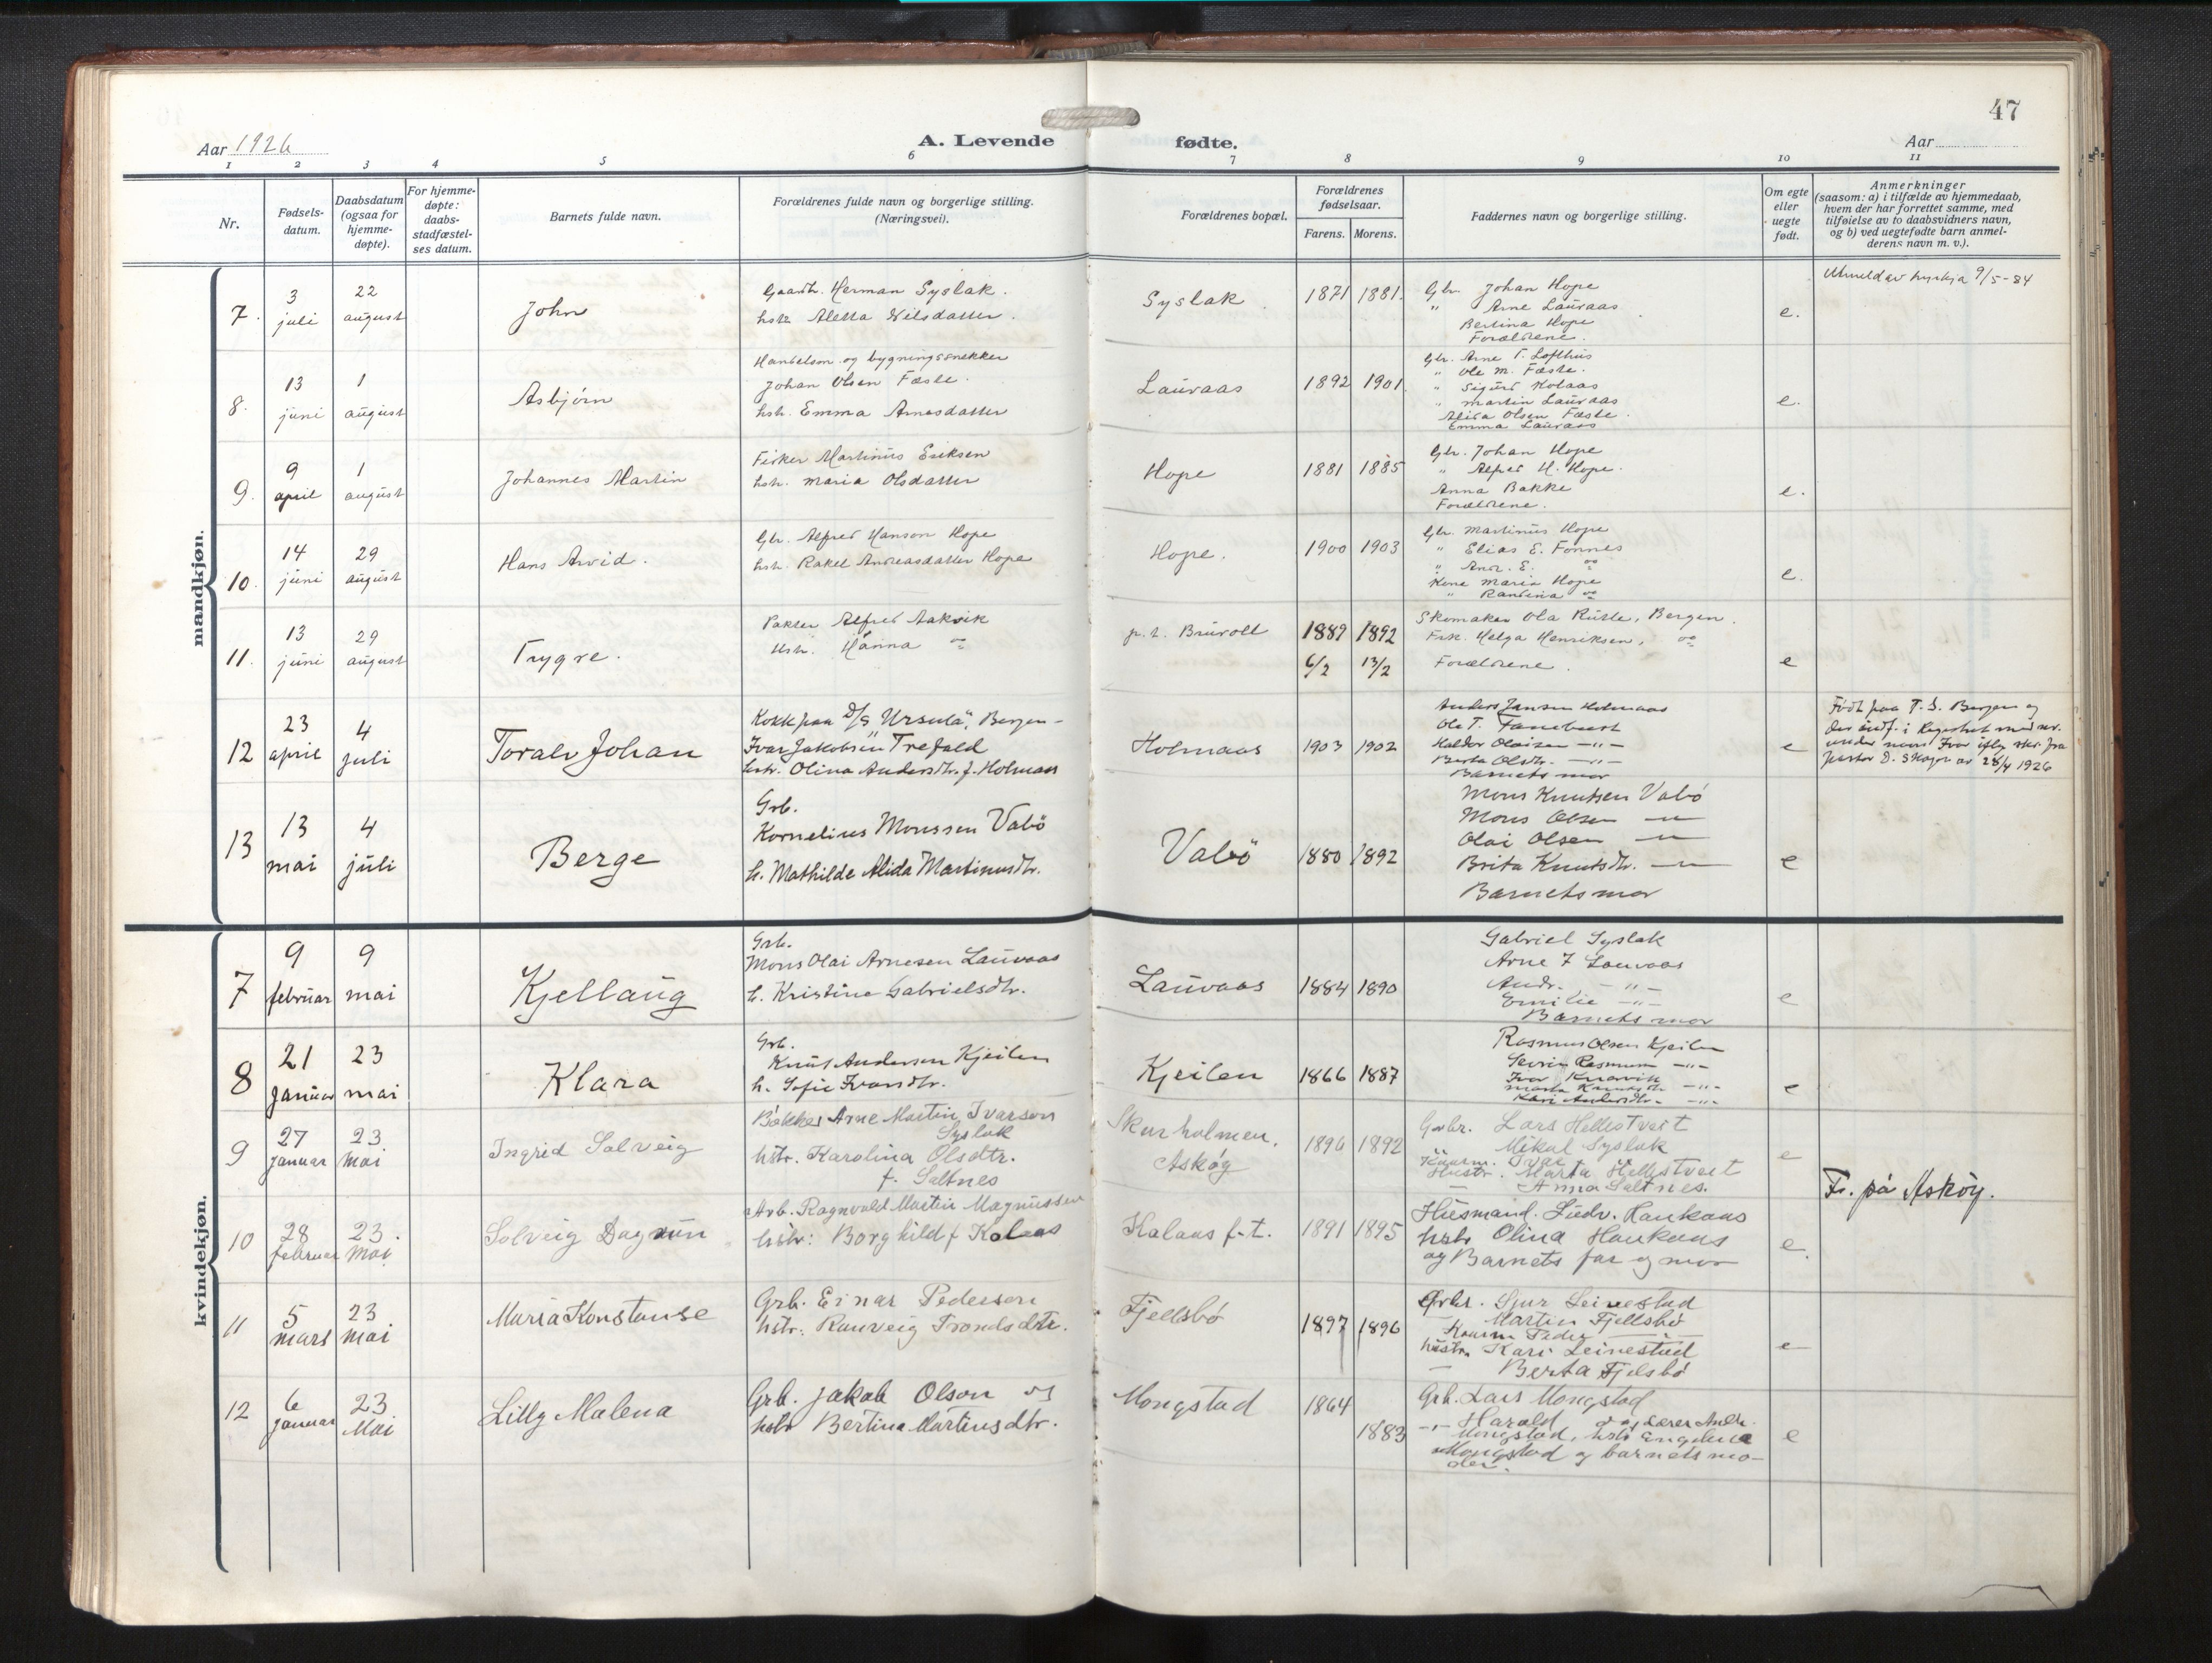 47
Aar 1926
A. Levende
fødte.
Aar
1 2 3 4 5 6 7 8 9 10 11
Nr.
Fødsels-
datum.
Daabsdatum
(ogsaa for
hjemme-
døpte).
For hjemme-
døpte:
daabs-
stadfæstel-
ses datum.
Barnets fulde navn.
Forældrenes fulde navn og borgerlige stilling.
(Næringsvei).
Forældrenes bopæl.
Forældrenes
fødselsaar.
Farens. Morens.
Faddernes navn og borgerlige stilling.
Om egte
eller
uegte
født.
Anmerkninger
(saasom: a) i tilfælde av hjemmedaab,
hvem der har forrettet samme, med
tilføielse av to daabsvidners navn,
og b) ved uegtefødte barn anmel-
derens navn m. v.).
mandkjøn.
7.
3
juli
22
august
John
Gaardb. Herman Syslak.
hstr. Aletta Nilsdatter.
Syslak
1871 1881.
Gbr. Johan Hope
" Arne Lauraas
Bertina Hope
Forældrene.
e.
Utmeld av kyrkja 9/5-84
8.
13
juni
1
august
Asbjørn
Handelsm. og bygningssnekker
Johan Olsen Fæste.
hstr. Emma Arnesdatter
Lauraas
1892 1901.
Gbr. Arne T. Lofthus
" Ole M. Fæste.
" Sigurd Kolaas
" Martin Lauraas
Alida Olsen Fæste.
Emma Lauraas
e.
9.
9
april
1
august
Johannes Martin
Fisker Martinus Eriksen
hstr. Maria Olsdatter
Hope
1881 1885
Gbr. Johan Hope
" Alfred H. Hope.
Anna Bakke
Forældrene.
e.
10.
14
juni
29
august
Hans Arvid.
Gbr. Alfred Hanson Hope
hstr. Rakel Andreasdatter Hope
Hope.
1900 1903
Gbr. Martinus Hope
" Elias E. Fonnes
" Andr. E. do
Kone Maria Hope
" Randina do
e.
11.
13
juni
29
august
Trygve.
Pakter Alfred Aakvik
Hstr. Hanna do
p. t. Brurolt
1889 1892
6/2 13/2
Skomaker Ola Rutle, Bergen.
Frk. Helga Henriksen, do
Forældrene.
e
12
23
april
4
juli
Toralv Johan
Kokk paa D/S "Ursula", Bergen -
Ivar Jakobsen Trefald
hstr. Olina Andersdtr. f. Holmaas
Holmaas
1903 1902
Anders Jansen Holmaas
Ole T. Tanebust
Haldor Olaisen -"-
Berta Olsdtr. -"-
Barnets mor
e
Født paa F. S. Bergen og
under navn Ivar iflg. skr. fra
pastor D. 28/4 1926
13
13
mai
4
juli
Berge
Grb.
Kornelius Monssen Vabö
h. Mathilde Alida Martinusdtr.
Vabö
1880 1892
Mons Knutsen Vabö
Mons Olsen -"-
Olai Olsen -"-
Brita Knutsdtr. -"-
Barnets mor
e
kvindekjøn.
7
9
februar
9
mai
Kjellaug
Grb.
Mons Olai Arnesen Lauvaas
h. Kristine Gabrielsdtr.
Lauvaas
1884 1890
Gabriel Syslak
Arne J Lauvaas
Andr. -"-
Emilie -"-
Barnets mor
e
8
21
januar
23
mai
Klara
Grb.
Knut Andersen Kjeilen
h. Sofie Ivarsdtr.
Kjeilen
1866 1887
Rasmus Olsen Kjeilen
Severin Rasmusen -"-
Ivar Knarvik
Marta Knutsdtr -"-
Kari Andersdtr. -"-
e
9
27
januar
23
mai
Ingrid Solveig
Bøkker Arne Martin Ivarsson
Syslak
hstr. Karolina Olsdtr.
f. Saltnes
Skurholmen,
Askøy
1890 1892
Grbr. Lars Hellestveit
Mikal Syslak
Ungkarm. Ivar
Hustr. Marta Hellestveit
- Anna Saltnes.
e
Fr. på Askøy.
10
28
februar
23.
Mai
Solveig Dagrun
Arb. Ragnvald Martin Magnussen
hstr: Borghild f Kolaas
Kalaas f. t.
1891 1895
Husmand. Ludv. Haukaas
hstr Olina Haukaas
og Barnets far og mor
e.
11
5
mars
23
mai
Maria Konstanse
Grb. Einar Pedersen
hstr: Rauveig Trondsdtr.
Fjellsbö
1897 1896
Grbr. Sjur Leinestad
Martin Fjellsbö
Peder -"-
hustr. Kari Leinestad
- Berta Fjelsbö
e
12
6
januar
23
Mai
Lilly Malena
Grb. Jakob Olson og
hstr Bertina Martinsdtr.
Mongstad
1864
1883
Grb. Lars Mongstad
-"- Harald do og Lærer Andr.
Mongstad, hstr Engelina
Mongstad og barnets mo-
der.
e